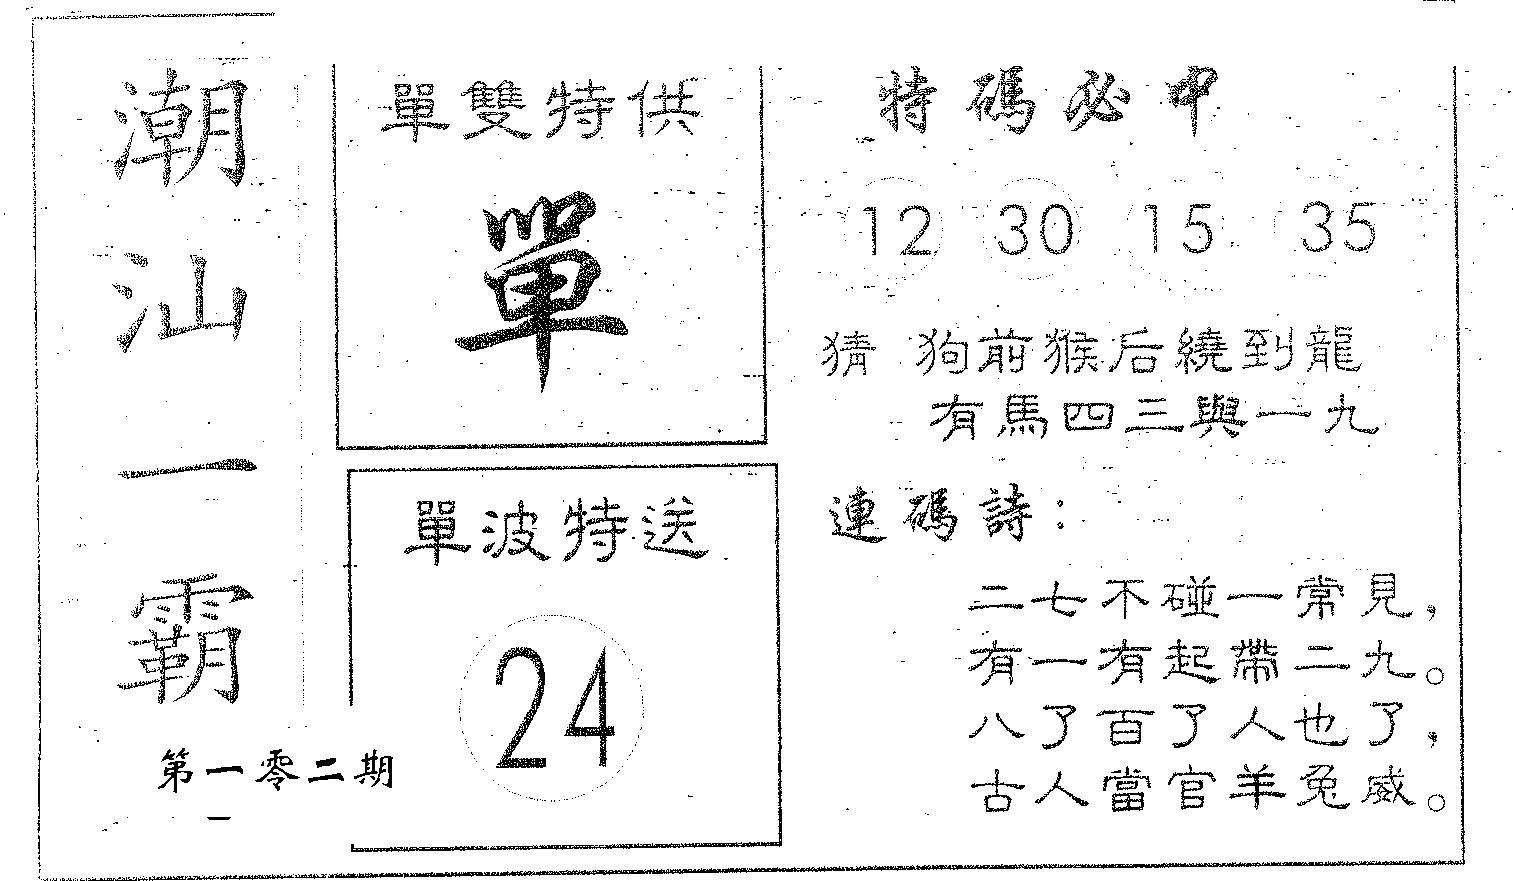 潮汕一霸
第一零二期
單雙特供
單
單波特送
24
特碼必中
12 30 15 35
猜 狗前猴后繞到龍
有馬四三與一九
連碼詩：
二七不碰一常見，
有一有起帶二九。
八了百了人也了，
古人當官羊兔威。